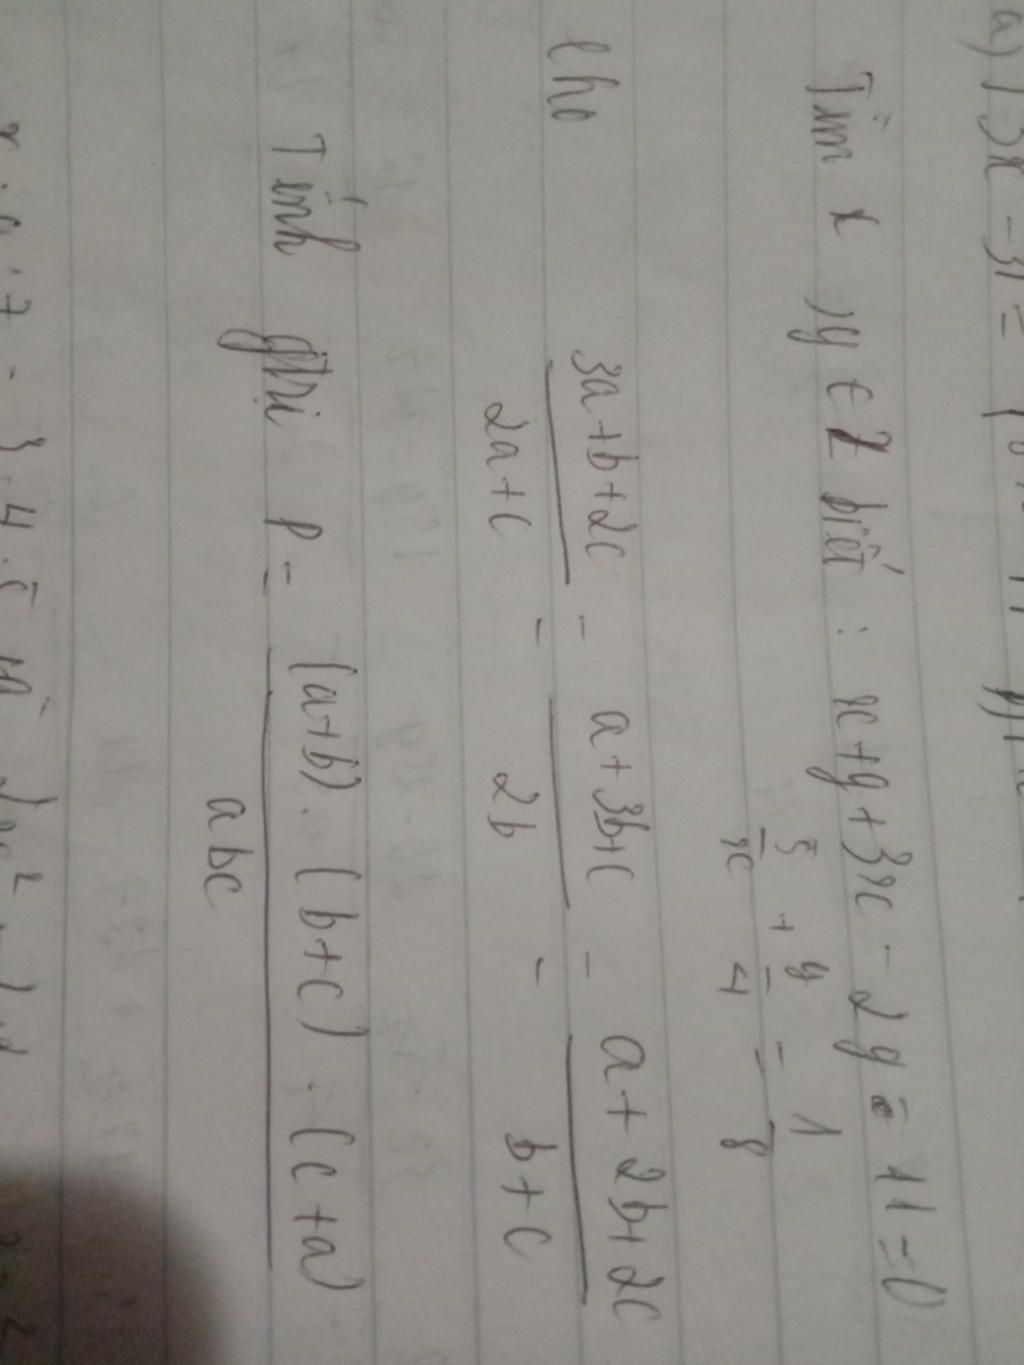 a) | 3x - 3| =
Tìm x, y ∈ Z biết : x + y + 3x - 2y - 11 = 0
5/x + y/4 = 1/8
Cho (3a+b+2c)/(2a+c) = (a+3b+c)/(2b) = (a+2b+2c)/(b+c)
Tính gtrị P = ((a+b).(b+c).(c+a))/(abc)